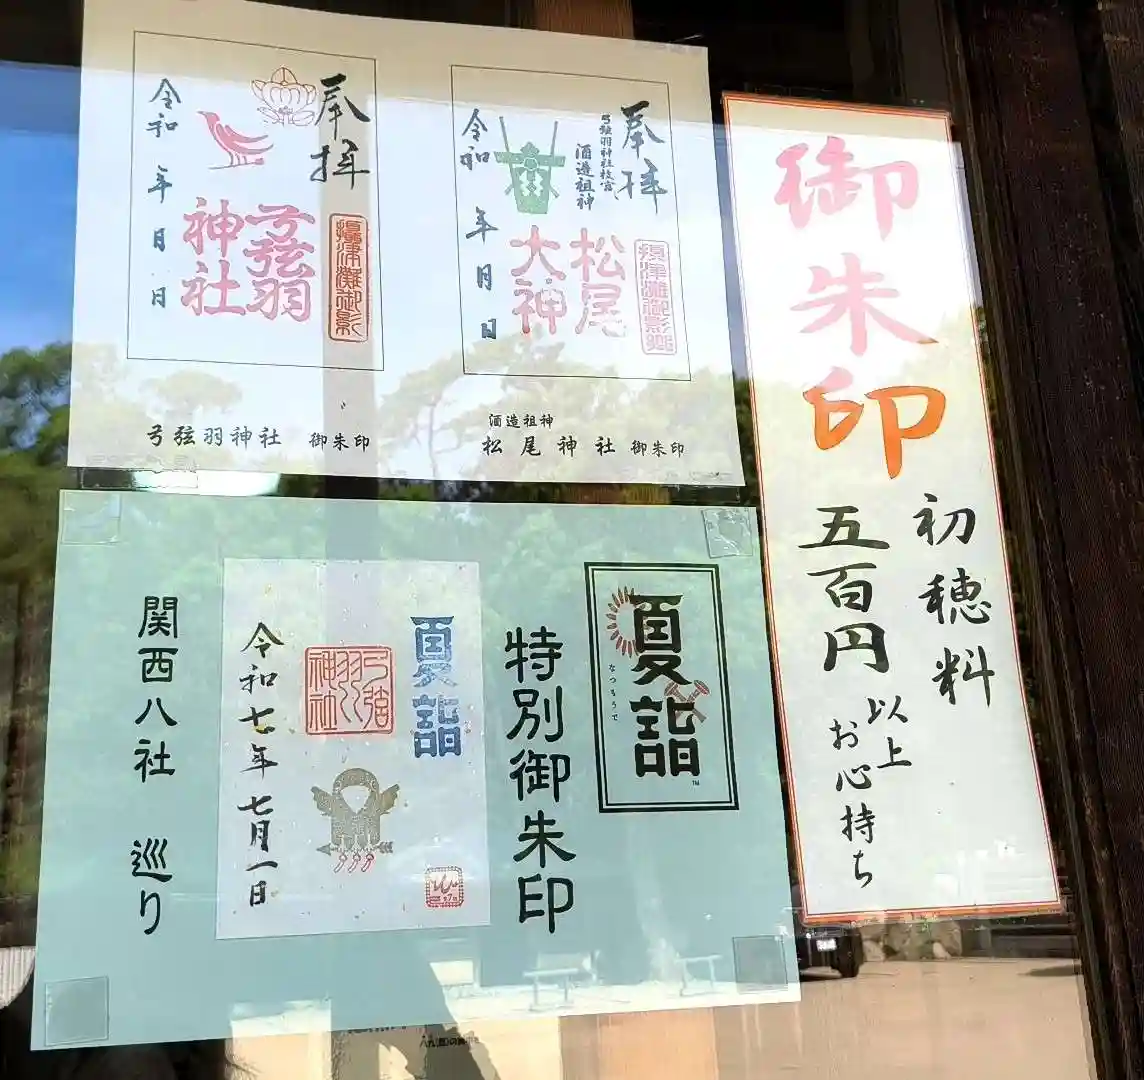 奉拝
摂津灘御影
弓弦羽
神社
令和 年 月 日
弓弦羽神社 御朱印
奉拝
弓弦羽神社枝宮
酒造祖神
松尾
大神
令和 年 月 日
酒造祖神
松尾神社 御朱印
御朱印
初穂料
五百円
以上
お心持ち
夏詣
なつもうで
TM
特別御朱印
夏詣
弓弦
羽
神社
令和七年七月一日
関西八社 巡り